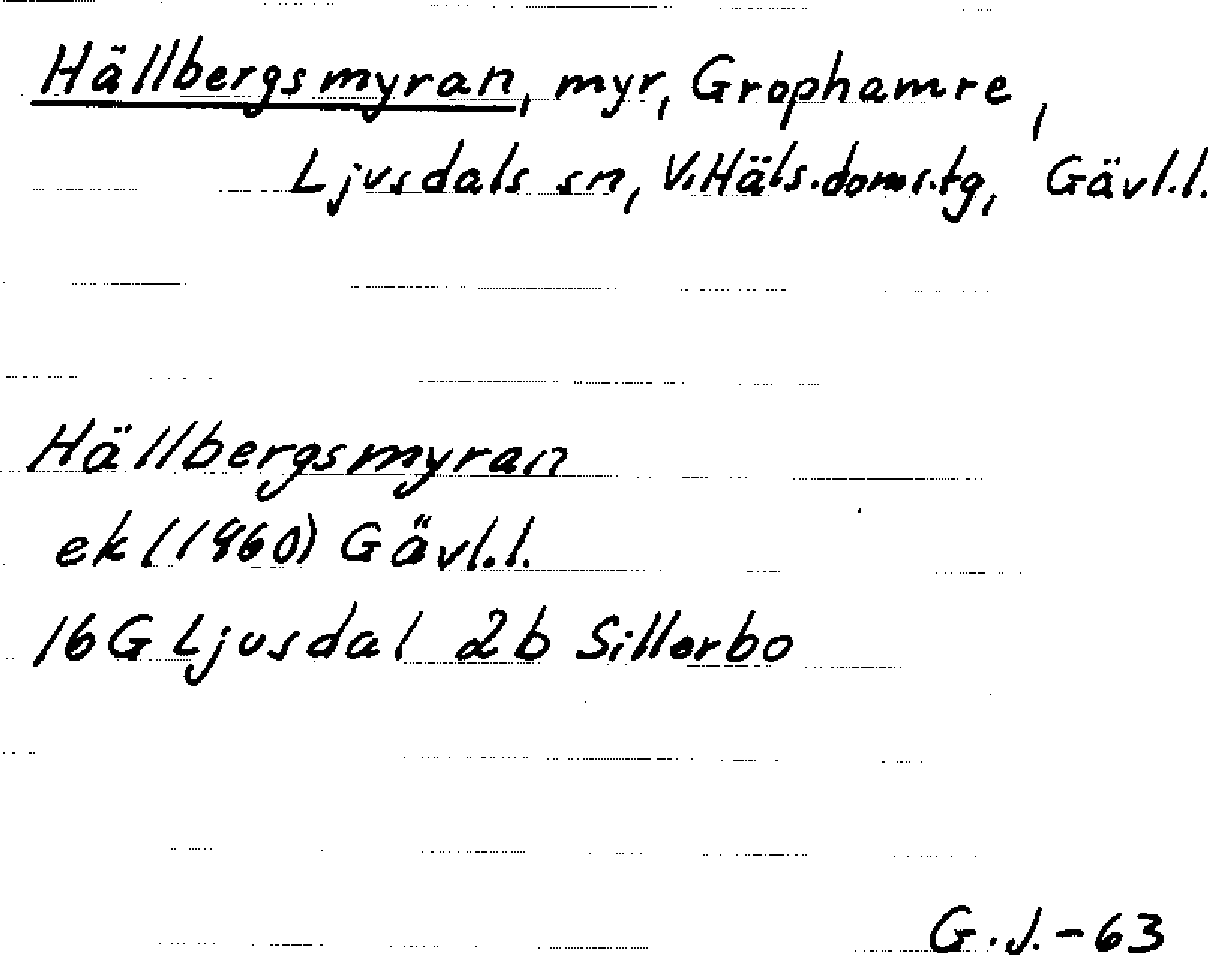 Hällbergsmyran, myr, Grophamre,
Ljusdals sn, V.Häls.doms.tg, Gävl.l.
Hällbergsmyran
ek (1960) Gävl.l.
16G Ljusdal 2b Sillerbo
G.J.-63